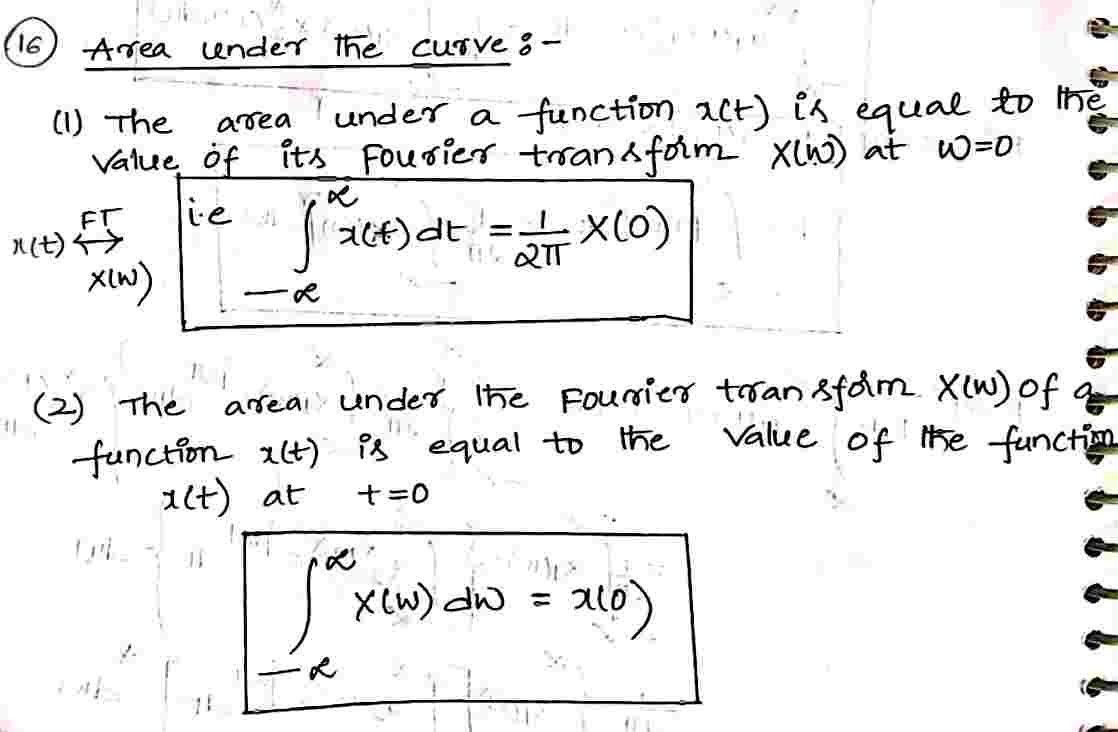 (16) Area under the curve :-
(1) The area under a function x(t) is equal to the
value of its Fourier transform X(w) at w=0
i.e ∫_{-∞}^{∞} x(t) dt = 1/2π X(0)
x(t) ⟷^{FT} X(w)
(2) The area under the Fourier transform X(w) of a
function x(t) is equal to the value of the function
x(t) at t=0
∫_{-∞}^{∞} X(w) dw = x(0)